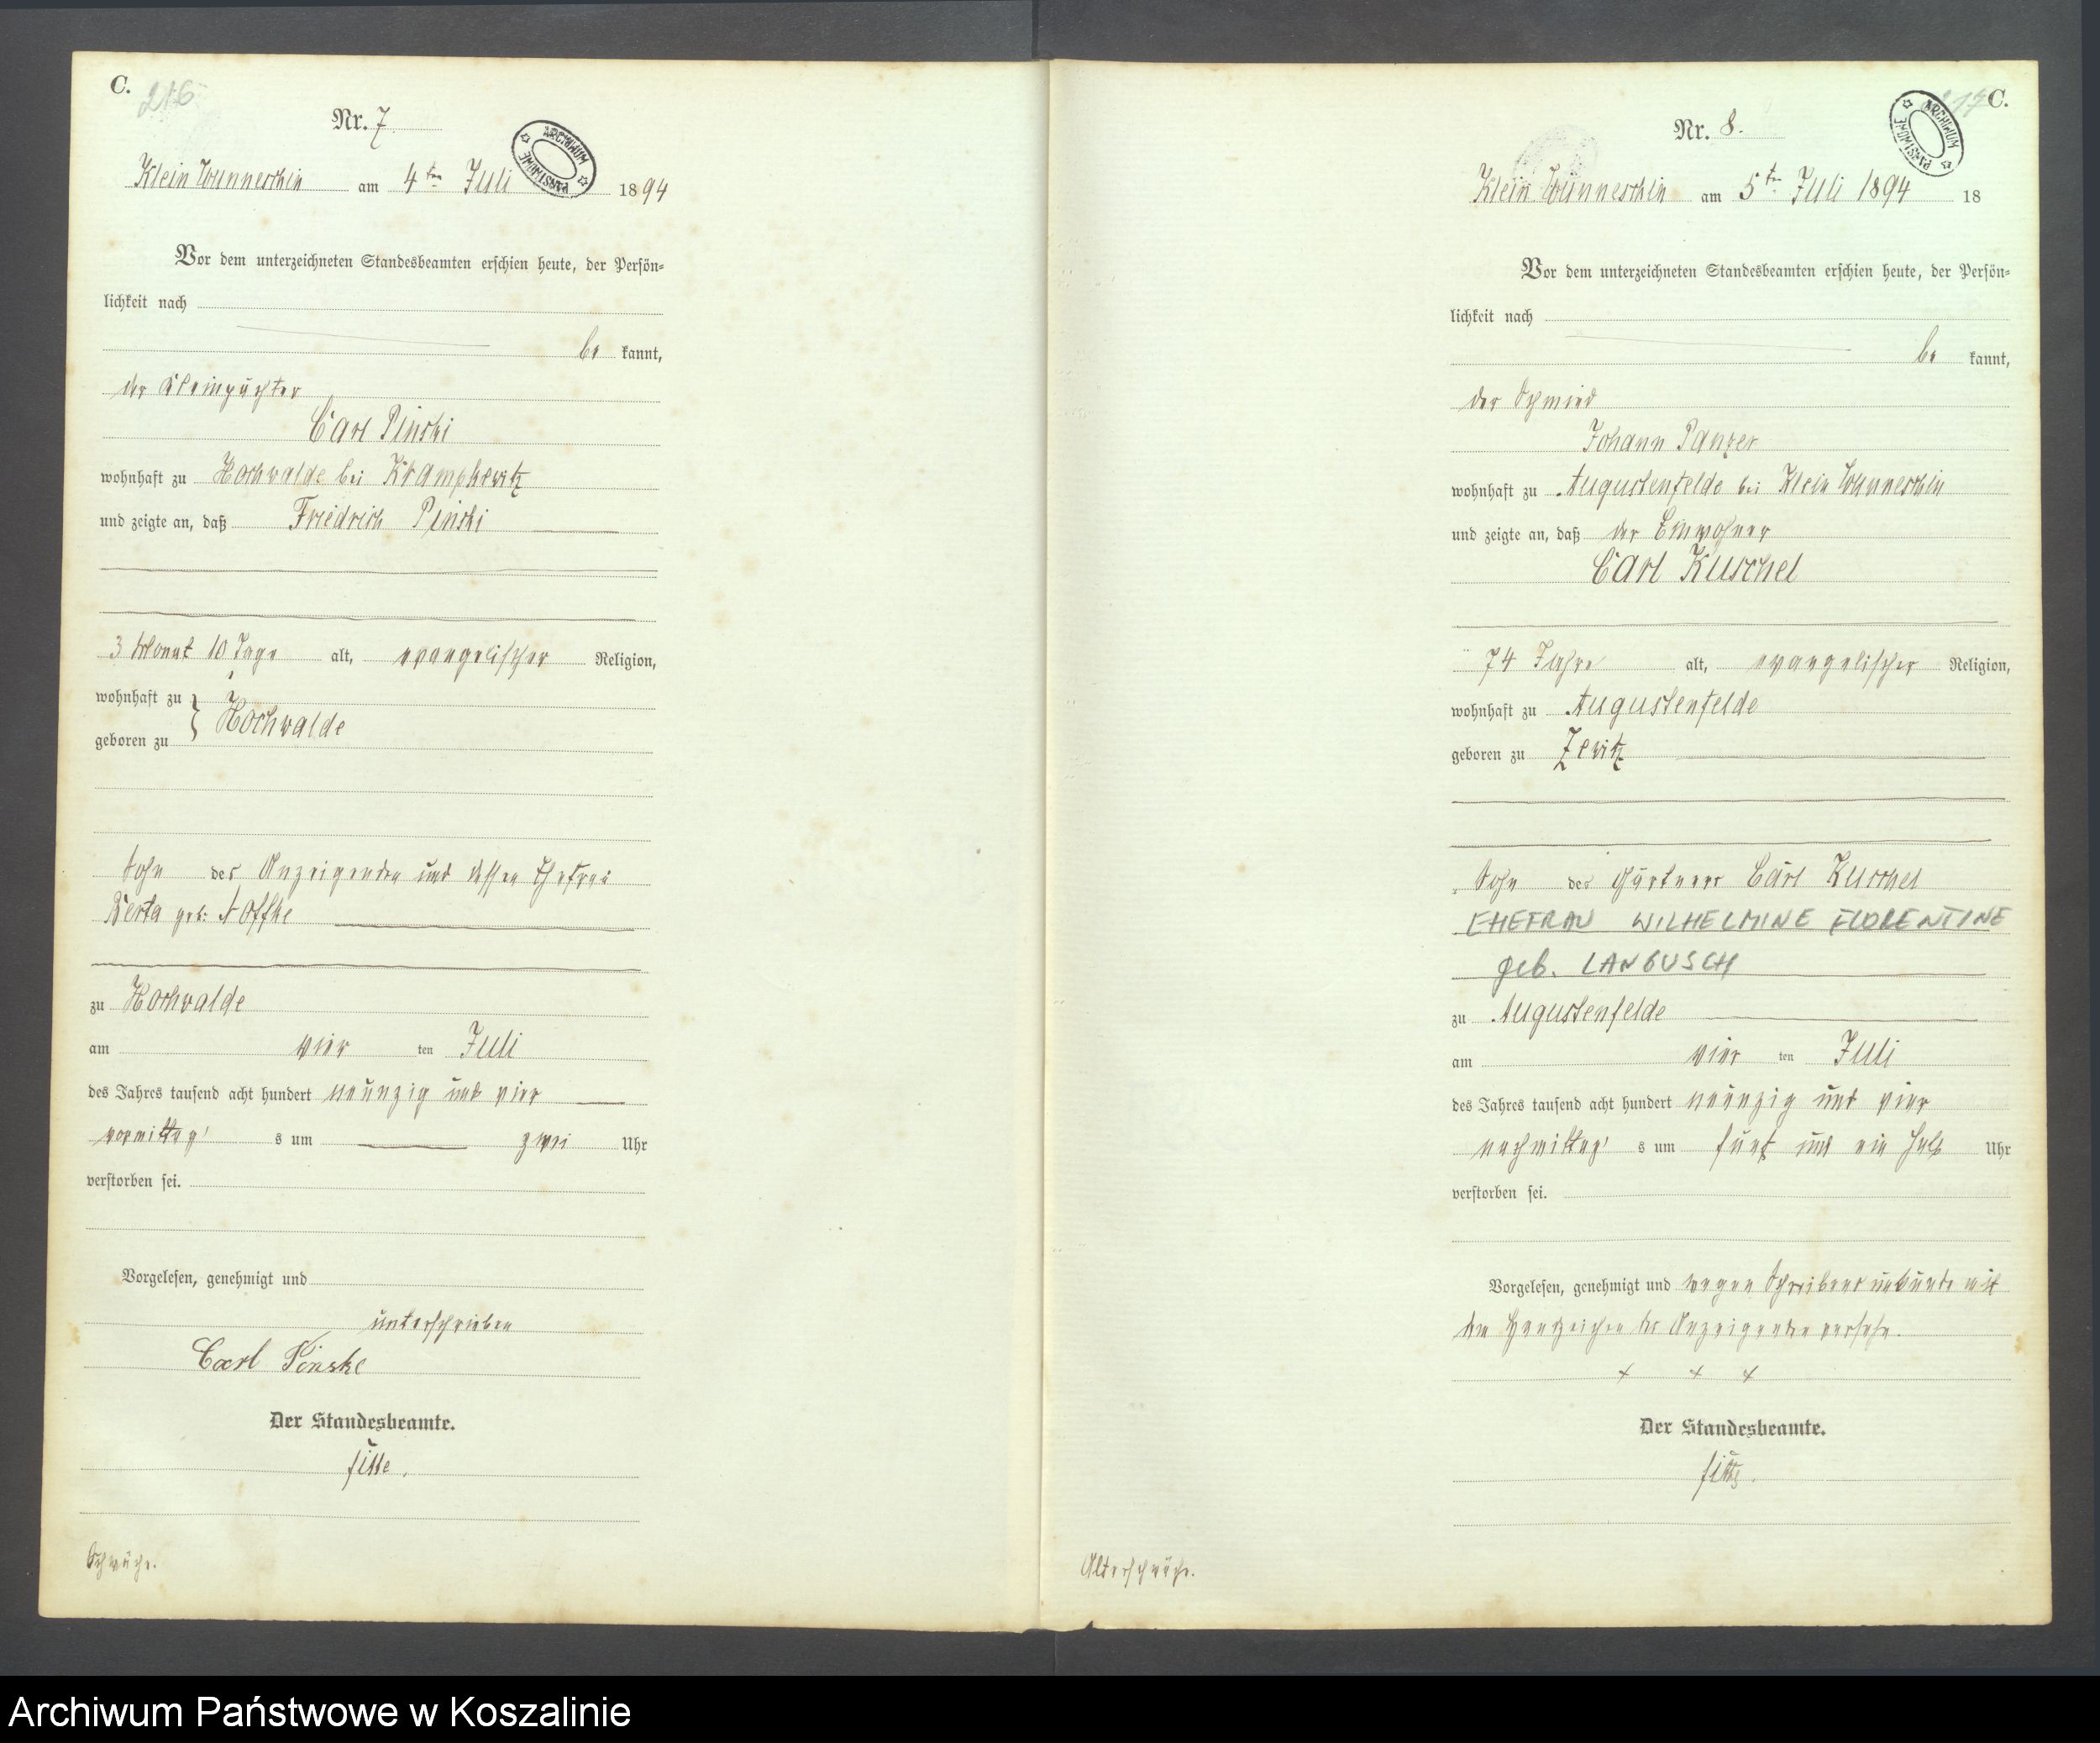 C.
216
Nr. 7.
ARCHIWUM PAŃSTWOWE
Klein Wunneschin am 4ten Juli 1894
Vor dem unterzeichneten Standesbeamten erschien heute, der Persön=
lichkeit nach
be kannt,
der Kleinpächter
Carl Pinski
wohnhaft zu Hochwalde bei Krampkewitz
und zeigte an, daß Friedrich Pinski
3 Monat 10 Tage alt, evangelischer Religion,
wohnhaft zu
Hochwalde
geboren zu
Sohn des Anzeigenden und dessen Ehefrau
Berta geb: Noffke
zu Hochwalde
am vier ten Juli
des Jahres tausend acht hundert neunzig und vier
vormittag s um zwei Uhr
verstorben sei.
Vorgelesen, genehmigt und
unterschrieben
Carl Pinske
Der Standesbeamte.
Schwäche.
C.
217
Nr. 8.
ARCHIWUM PAŃSTWOWE
Klein Wunneschin am 5ten Juli 1894 18
Vor dem unterzeichneten Standesbeamten erschien heute, der Persön=
lichkeit nach
be kannt,
der Schmied
Johann Panzer
wohnhaft zu Augustenfelde bei Klein Wunneschin
und zeigte an, daß der Einwohner
Carl Kuschel
74 Jahre alt, evangelischer Religion,
wohnhaft zu Augustenfelde
geboren zu Zewitz
Sohn des Gärtners Carl Kuschel
EHEFRAU WILHELMINE FLORENTINE
geb. LANGUSCH
zu Augustenfelde
am vier ten Juli
des Jahres tausend acht hundert neunzig und vier
nachmittag s um fünf und ein halb Uhr
verstorben sei.
Vorgelesen, genehmigt und wegen Schreibensunkunde mit
dem Handzeichen des Anzeigenden versehn.
+ + +
Der Standesbeamte.
Altersschwäche.
Archiwum Państwowe w Koszalinie